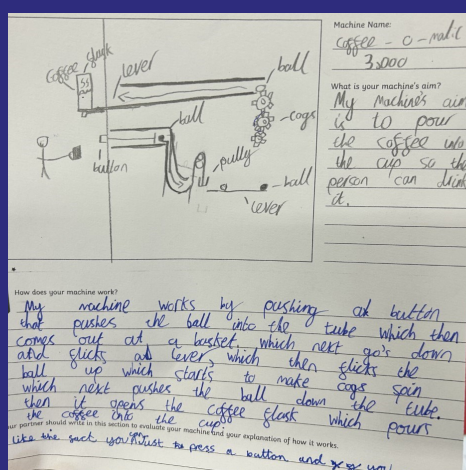 Machine Name:
coffee - o - matic
3,000
What is your machine's aim?
My Machine's aim
is to pour
the coffee into
the cup so the
person can drink
it.
coffee flask
lever
ball
cogs
ball
button
pully
ball
lever
How does your machine work?
My machine works by pushing a button
that pushes the ball into the tube which then
comes out at a basket, which next go's down
and flicks a lever, which then flicks the
ball up which starts to make cogs spin
which next pushes the ball down the tube.
then it opens the coffee flask which pours
the coffee into the cup.
ur partner should write in this section to evaluate your machine and your explanation of how it works.
like the you can just press a button and